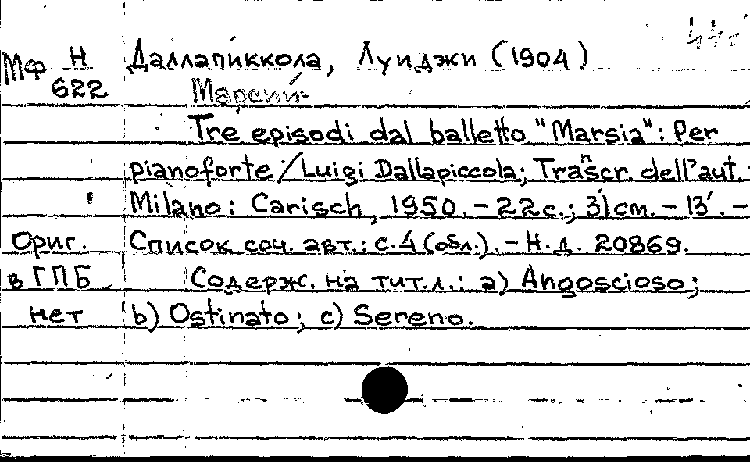 МФ Н Даллапиккола, Луиджи (1904)
622 Марсий-
Tre episodi dal balletto "Marsia": Per
pianoforte/Luigi Dallapiccola; Trascr. dell'aut. -
Milano: Carisch, 1950. - 22 с.; 31 cm. - 13'. -
Ориг. Список соч. авт.: с. 4 (обл.). - Н.д. 20869.
в ГПБ Содерж. на тит.л.: a) Angoscioso;
нет b) Ostinato; c) Sereno.